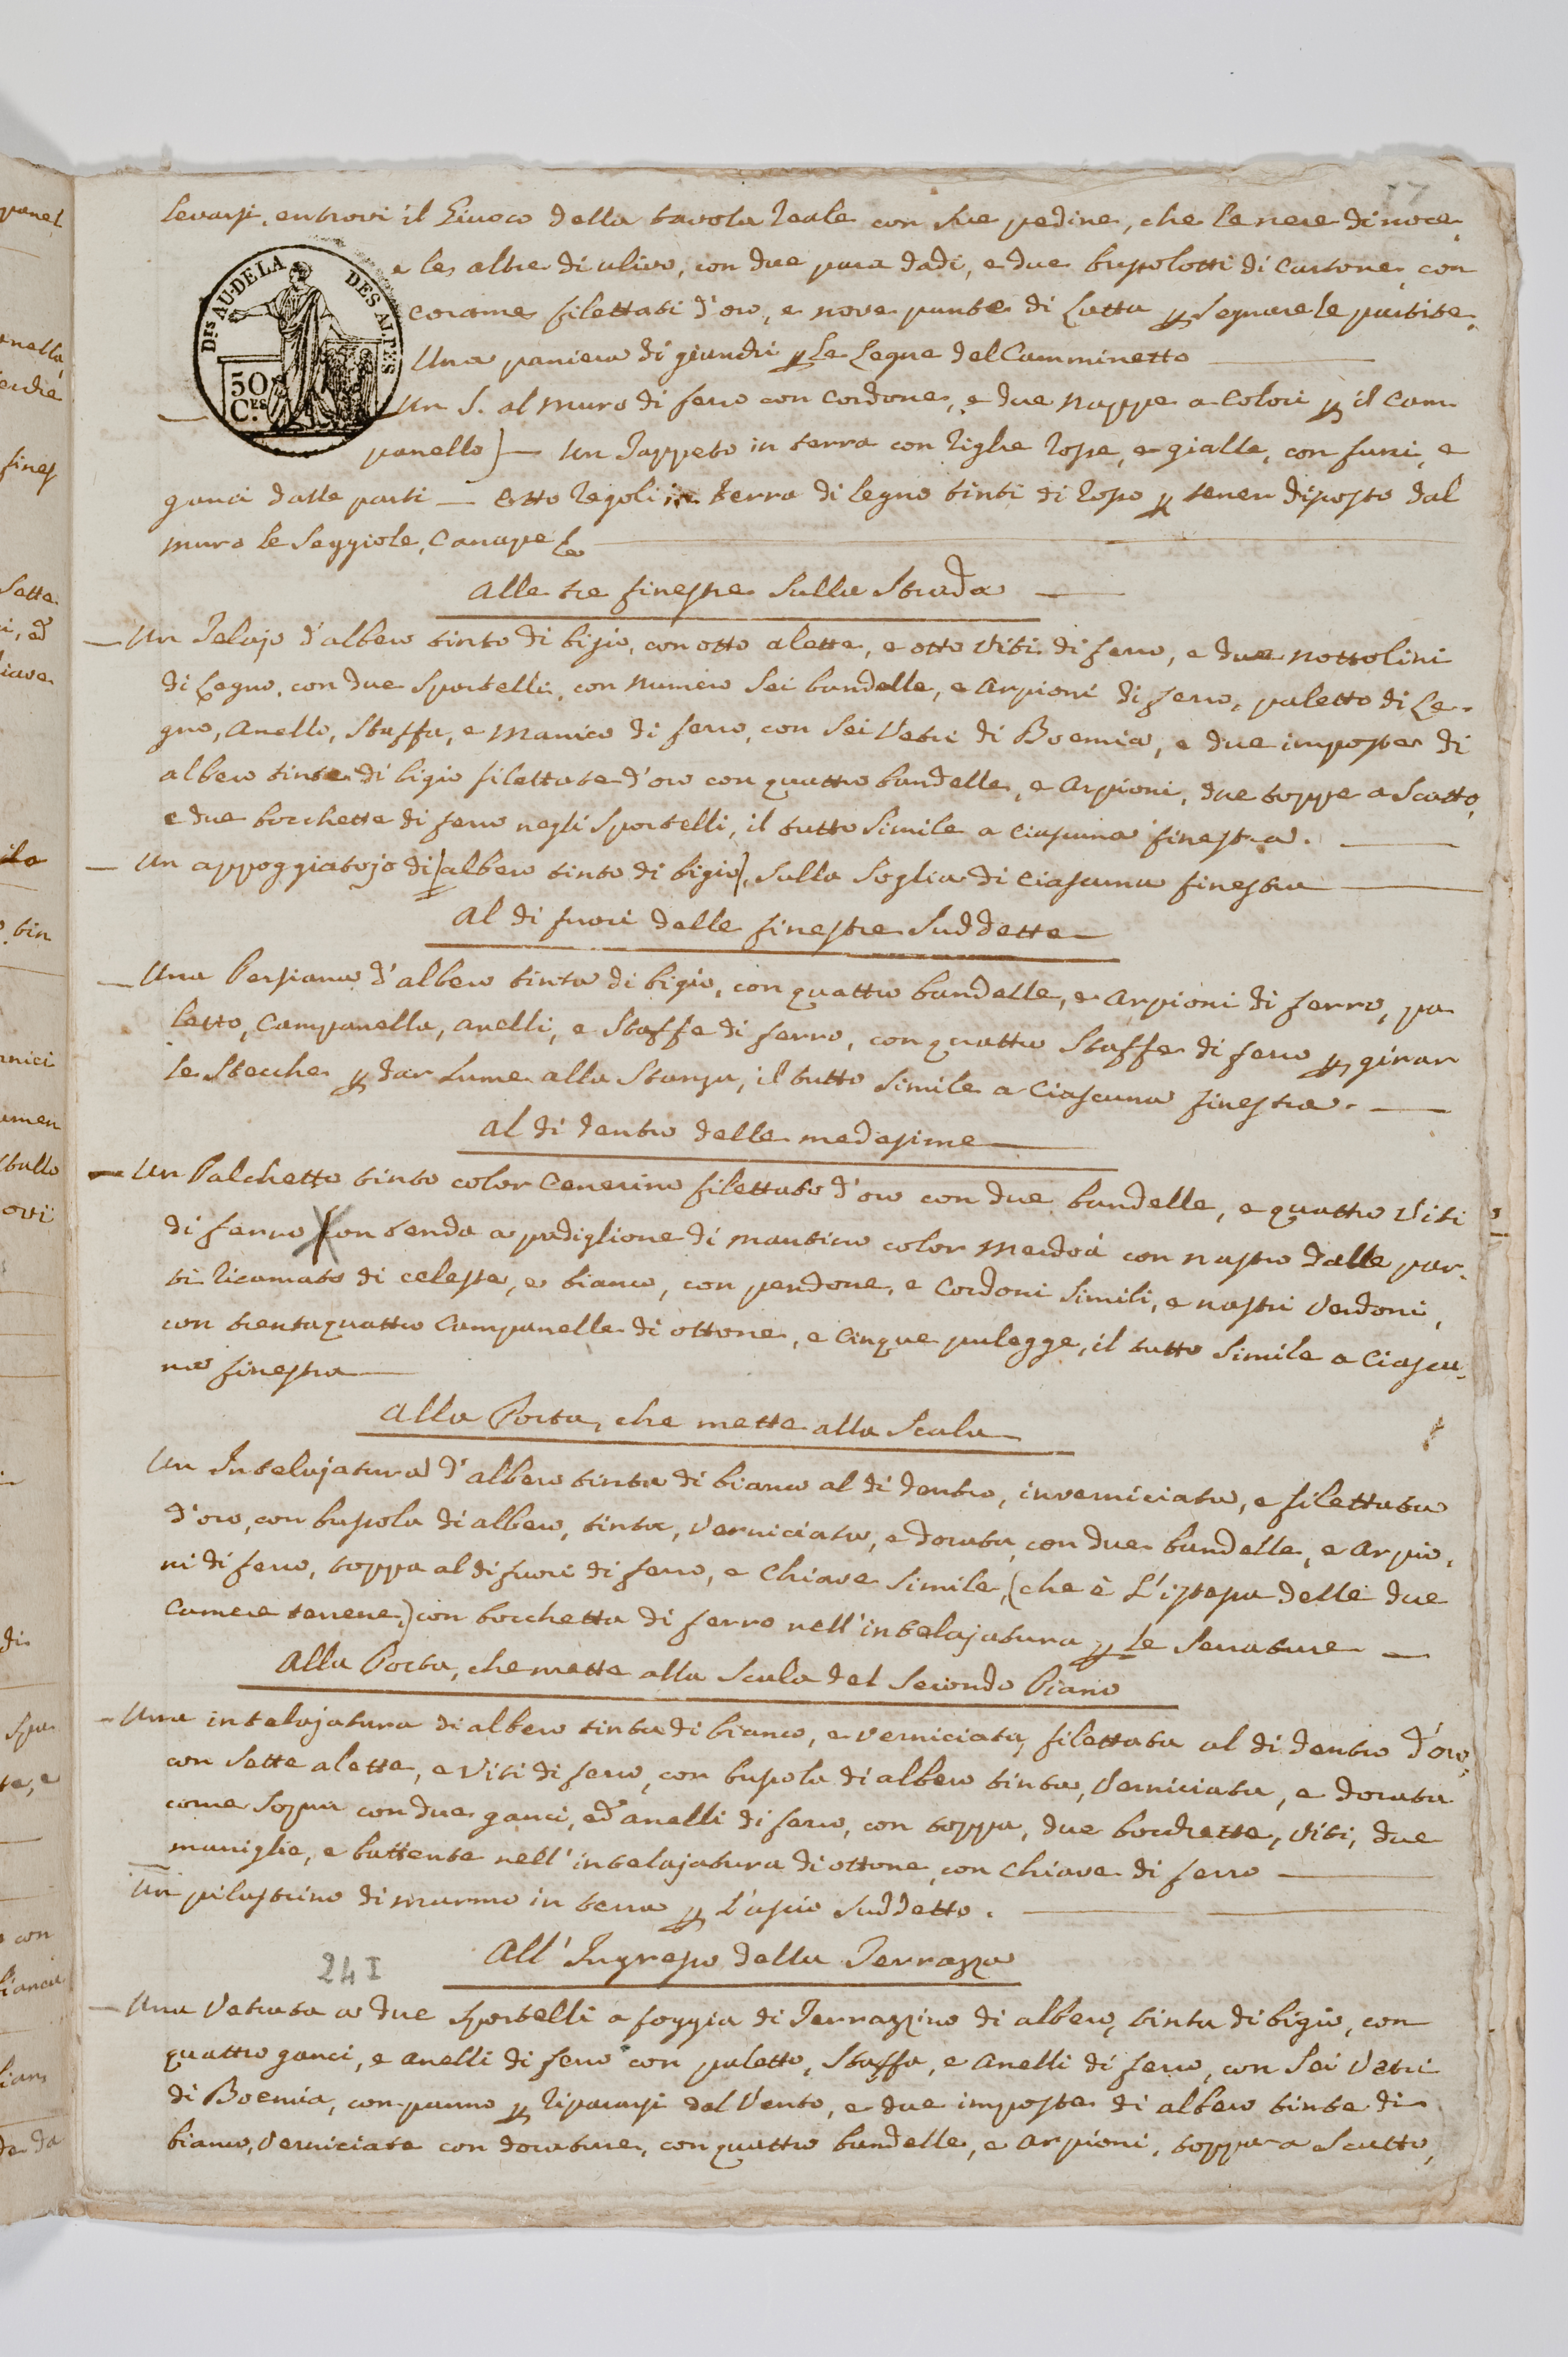 17
levarsi, entrovi il Giuoco della tavola reale con sue pedine, che le nere di noce,
e le altre di ulivo, con due para dadi, e due bussolotti di Cartone, con
corame filettati d'oro, e nove punte di Latta p segnare le partite.
Una paniera di giunchi p le Legne del Camminetto
Un S. al muro di ferro con Cordone, e due nappe a colori p il Cam-
panello) — Un Tappeto in terra con righe rosse, e gialle, con funi, e
ganci dalle parti — Otto regoli in terra di legno tinti di rosso p tener discosto dal
muro le Seggiole, Canapè &
Alle tre finestre sulla Strada —
— Un Telajo d'albero tinto di bigio, con otto alette, e otto Viti di ferro, e due nottolini
di Legno, con due Sportelli, con numero sei bandelle, e Arpioni di ferro, paletto di Le-
gno, Anello, Staffa, e Manico di ferro, con sei Vetri di Boemia, e due imposte di
albero tinte di bigio filettate d'oro con quattro bandelle, e Arpioni, due toppe a Scatto,
e due bocchette di ferro negli Sportelli, il tutto Simile a ciascuna finestra.
— Un appoggiatojo di albero tinto di bigio, sulla Soglia di ciascuna finestra
Al di fuori delle finestre suddette
— Una Persiana d'albero tinta di bigio, con quattro bandelle, e Arpioni di ferro, pa
letto, Campanella, anelli, e Staffe di ferro, con quattro Staffe di ferro p girar
le Stecche p dar Lume alla Stanza, il tutto Simile a Ciascuna finestra. —
Al di dentro delle medesime
— Un Palchetto tinto color Cenerino filettato d'oro con due bandelle, e quattro Viti
di ferro con tenda a padiglione di mantino color Merdoà con nastro dalle par-
ti ricamato di celeste, e bianco, con pendone, e Cordoni Simili, e nastri Verdoni,
con trentaquattro Campanelle di ottone, e Cinque pulegge, il tutto Simile a Ciascu-
na finestra
Alla Porta, che mette alla Scala
Un Intelajatura d'albero tinta di bianco al di dentro, inverniciata, e filettata
d'oro, con bussola di albero, tinta, Verniciata, e dorata, con due bandelle, e Arpio-
ni di ferro, toppa al di fuori di ferro, e Chiave Simile, (che è L'istessa delle due
Camere terrene,) con bocchetta di ferro nell'intelajatura p le Serrature —
Alla Porta, che mette alla Scala del Secondo Piano
— Una intelajatura di albero tinta di bianco, e verniciata, filettata al di dentro d'oro,
con Sette alette, e Viti di ferro, con bussola di albero tinta, Verniciata, e dorata
come Sopra con due ganci, ed anelli di ferro, con toppa, due bocchette, Viti, due
maniglie, e battente nell'intelajatura di ottone, con Chiave di ferro
Un pilastrino di marmo in terra p L'uscio Suddetto.
All'Ingresso della Terrazza
24 I
— Una Vetrata a due Sportelli a foggia di Terrazzino di albero, tinta di bigio, con
quattro ganci, e anelli di ferro con paletto, Staffa, e Anelli di ferro, con Sei Vetri
di Boemia, con panno p ripararsi dal Vento, e due imposte di albero tinte di
bianco, Verniciate con dorature, con quattro bandelle, e Arpioni, toppa a Scatto,
DRS AU-DELA DES ALPES
50
CES